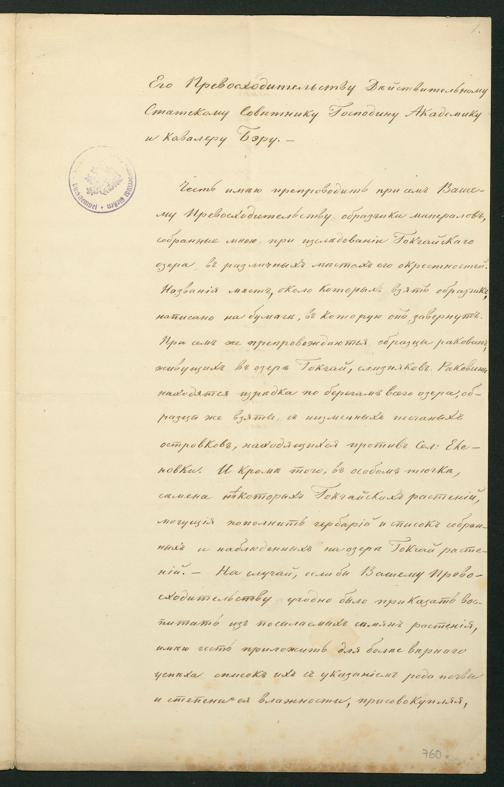 1.
Его Превосходительству Действительному
Статскому Совѣтнику Господину Академику
и Кавалеру Бэру. —
Честь имѣю препроводить при семъ Ваше-
му Превосходительству образчики минераловъ,
собранные мною при изслѣдованіи Гокчайскаго
озера, въ различныхъ мѣстахъ его окрестностей.
Названія мѣстъ, около которыхъ взятъ образчикъ,
написано на бумагѣ, въ которую онъ завернутъ.
При семъ же препровождаются образцы раковинъ,
живущихъ въ озерѣ Гокчай, слизняковъ. Раковины
находятся изрѣдка по берегамъ всего озера, об-
разцы же взяты съ низменныхъ песчаныхъ
островковъ, находящихся противъ Сел: Еле-
новки. И кромѣ того, въ особомъ тючкѣ,
сѣмена нѣкоторыхъ Гокчайскихъ растеній,
могущія пополнить гербарій и списокъ собран-
ныхъ и наблюденныхъ на озерѣ Гокчай расте-
ній. — На случай, если бы Вашему Прево-
сходительству угодно было приказать вос-
питать изъ посылаемыхъ сѣмянъ растенія,
имѣю честь приложить для болѣе вѣрнаго
успѣха списокъ ихъ съ указаніемъ рода почвы
и степени ея влажности, присовокупляя,
760